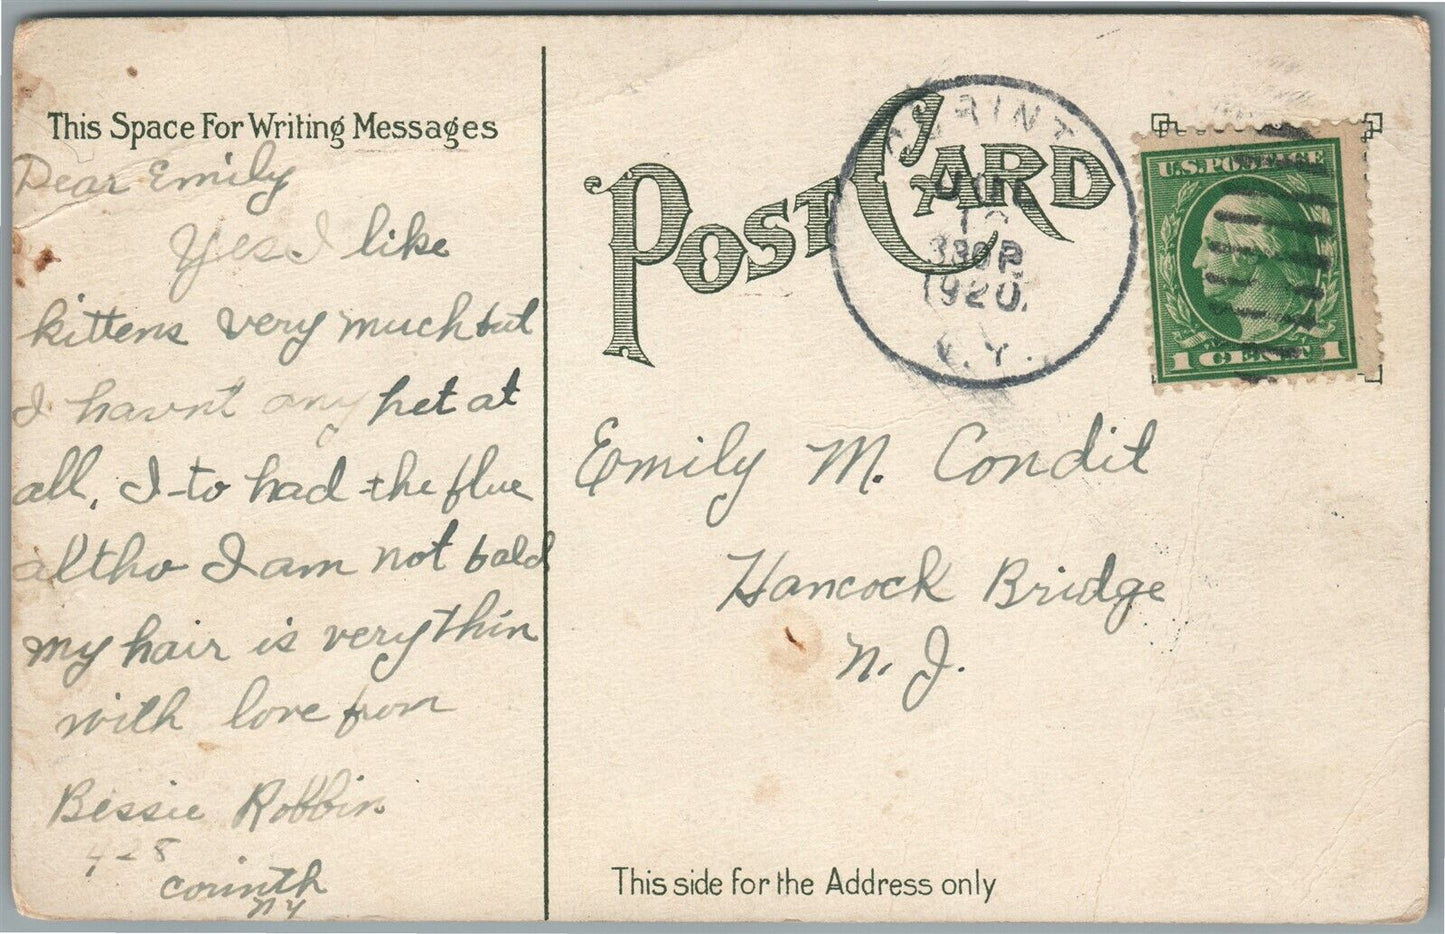 This Space For Writing Messages
Dear Emily
Yes I like
kittens very much but
I havn't any pet at
all, I to had the flue
altho I am not bald
my hair is very thin
with love from
Bessie Robbin
428
Corinth
NY
POST CARD
CORINTH
3 30 P
1920
N.Y.
U.S. POSTAGE
1 CENT 1
Emily M. Condit
Hancock Bridge
N. J.
This side for the Address only